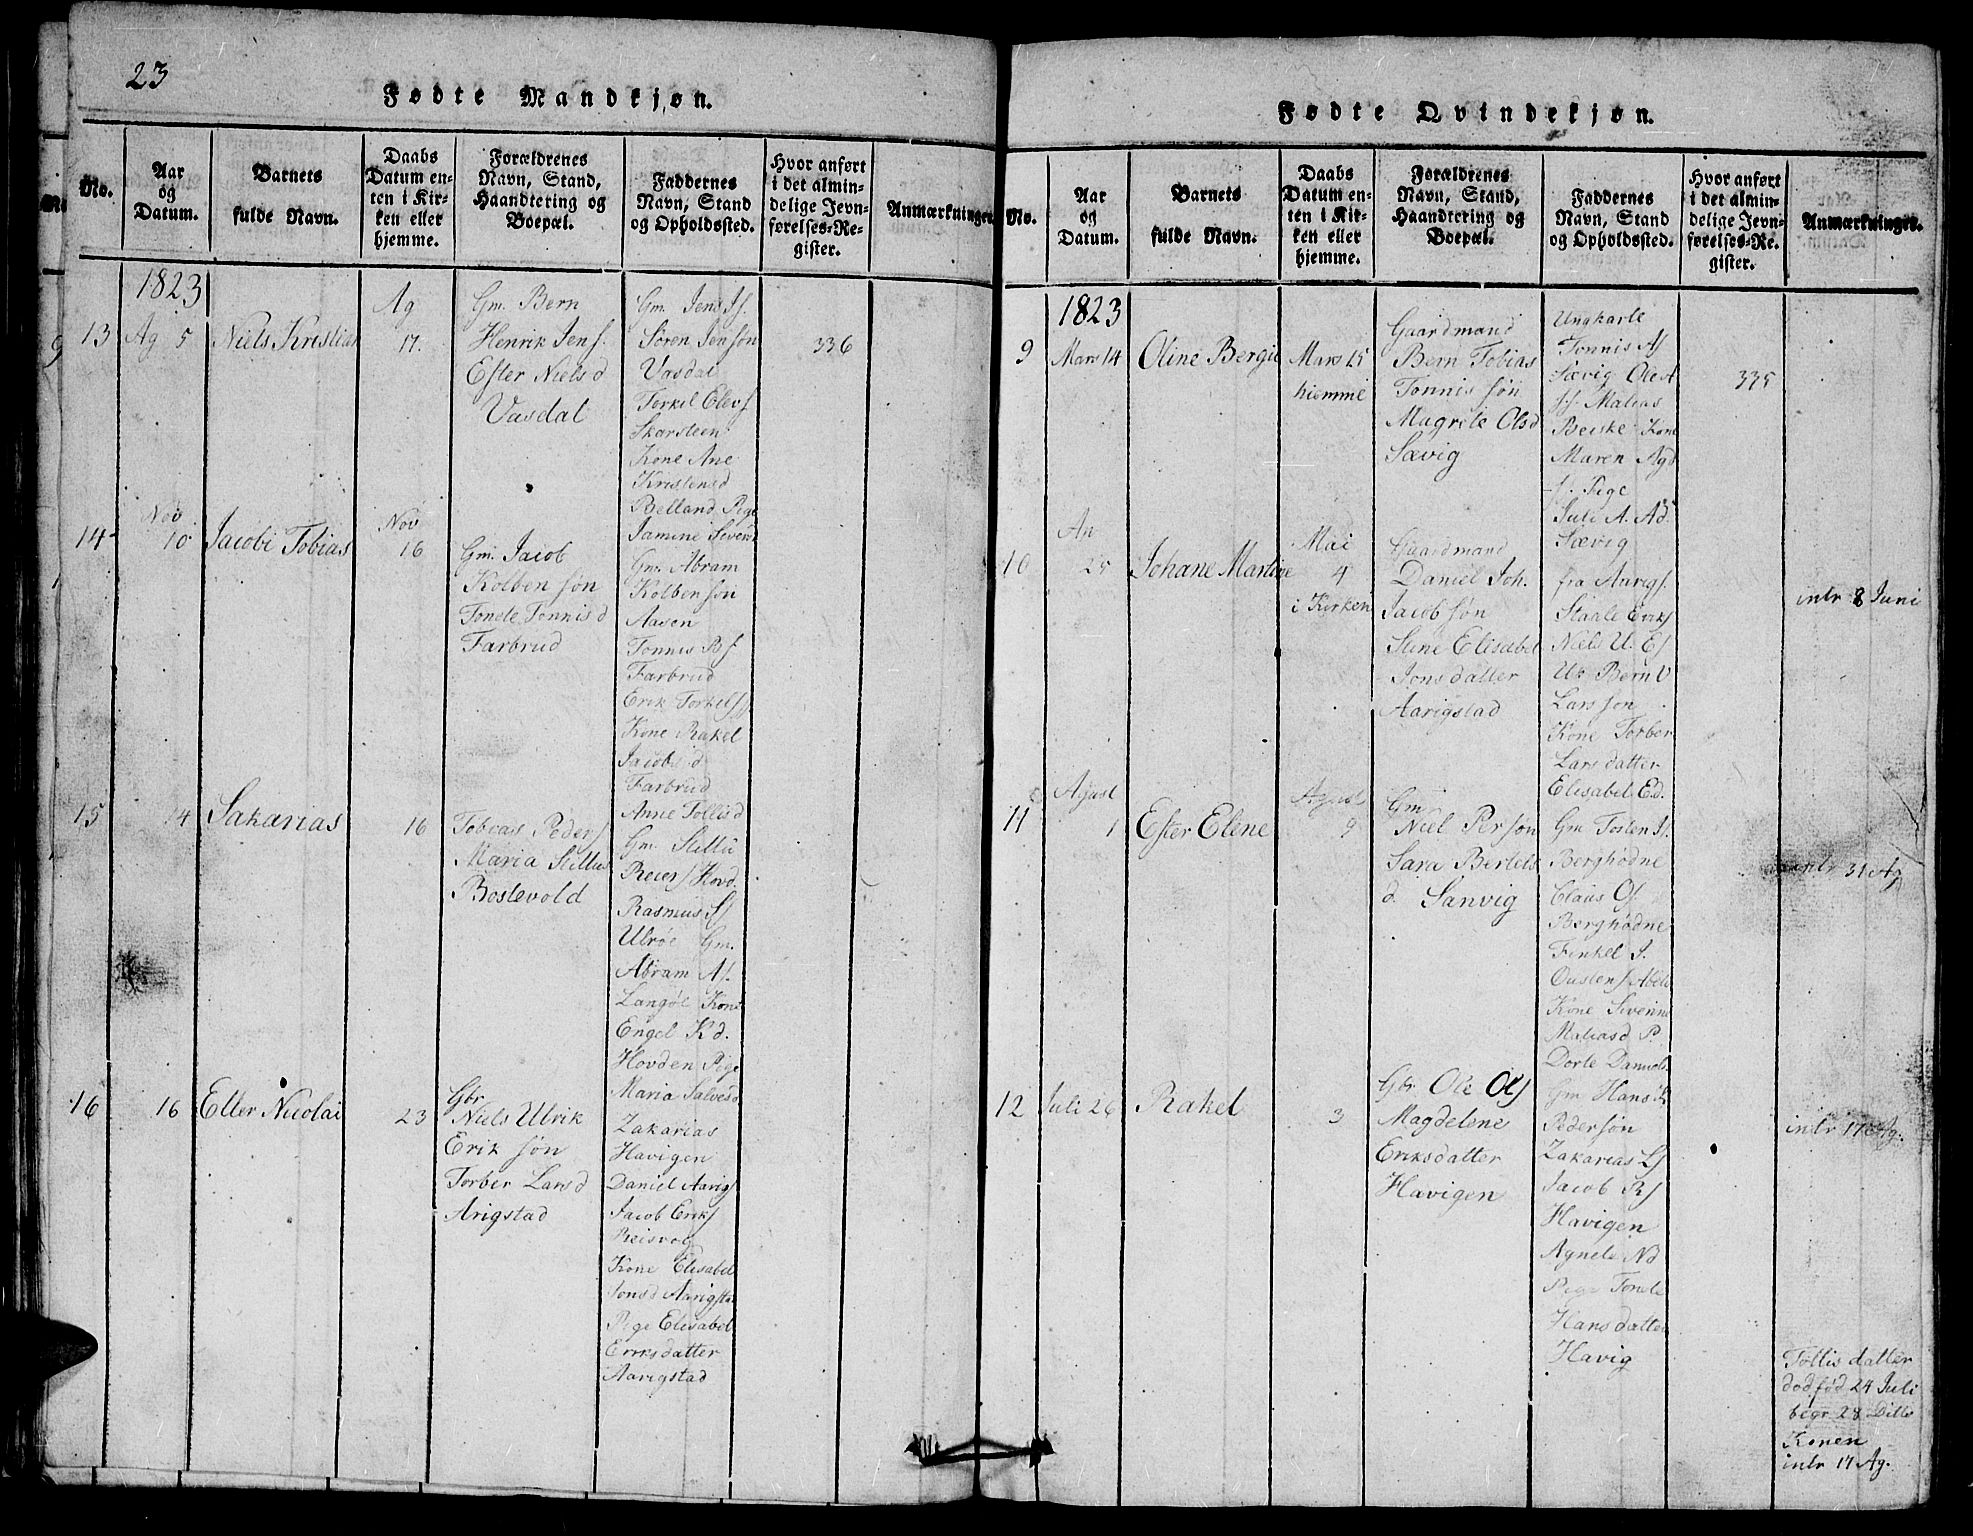 23
Fødte Mandkjøn.
No.
Aar og Datum.
Barnets fulde Navn.
Daabs Datum enten i Kirken eller hjemme.
Forældrenes Navn, Stand, Haandtering og Boepæl.
Faddernes Navn, Stand og Opholdssted.
Hvor anført i det almindelige Jevnførelses-Register.
Anmærkninger
1823
13
Ag 5
Niels Kristian
Ag
17.
Gm. Bern
Henrik Jens
Ester Niels d
Vasdal
Gm. Jens Js.
Søren Jensøn
Vasdal
Torkel Olevs
Skarsteen
Kone Ane
Kristensd
Belland Pige
Jamine Siverd
336
14
Nov
10
Jacobi Tobias
Nov
16
Gm. Jacob
Kolben søn
Tonete Tonnis d
Farbrud
Gm. Abram
Kolben søn
Aasen
Tonnis Bs
Farbrud
Erik Torkels
Kone Rakel
Jacobs d
Farbrud
Anne Tollisd
15
14
Sakarias
16
Tobias Peders
Maria Stillu
Bostevold
Gm. Stillu
Reiers Hovd.
Rasmus Ss
Ulrøe Gm.
Abram As.
Langøe Kone
Engel Kd.
Hovden Pige
Maria Salvesd
16
16
Eller Nicolai
23
Gbr
Niels Ulrik
Erik søn
Torber Lars d
Arigstad
Zakarias
Havigen
Daniel Aarigs
Jacob Eriks
Reisvog
Kone Elisabel
Jonsd Aarigsta
Pige Elisabel
Eriksdatter
Aarigstad
Fødte Qvindekjøn.
No.
Aar og Datum.
Barnets fulde Navn.
Daabs Datum enten i Kirken eller hjemme.
Forældrenes Navn, Stand, Haandtering og Boepæl.
Faddernes Navn, Stand og Opholdssted.
Hvor anført i det almindelige Jevnførelses-Re.gister.
Anmærkninger.
1823
9
Mars 14
Oline Bergit
Mars 15
hiemme
Gaardmand
Bern Tobias
Tonnis søn
Magrete Olsd
Sævig
Ungkarle
Tonnis As
Sævig Ole A
Malias
Beiske Kone
Maren Agd
Pige
Juli A. Ad.
Sævig
335
10
Ap
25
Johane Martine
Mai
4
i Kirken
Gaardmand
Daniel Joh.
Jacob søn
Stine Elisabel
Jonsdatter
Aarigstad
fra Aarigs.
Staale Eriks
Niels U. Es
Us Bern U
Lars søn
Kone Torber
Lars datter
Elisabel Ed.
intr 8 Juni
11
Agust
1
Ester Elene
Agust
9
Gm
Niel Persøn
Sara Bertels
d. Sanvig
Gm Tosten Js.
Berghødne
Claus Os.
Berghødne
Tenkel J.
Oustens Abel
Kone Siverine
Maliasd P.
Dorte Daniels
intr 31 Ag
12
Juli 26
Rakel
3
Gbr Ole Ols
Magdelene
Eriksdatter
Havigen
Gm Hans
Pedersøn
Zakarias Ls
Jacob Rs
Havigen
Agnete Nd
Pige Tonele
Hans datter
Havig
intr 17 Ag.
Tollis datter
dodfød 24 Juli
begr 28 Ditto
Konen
intr 17 Ag.